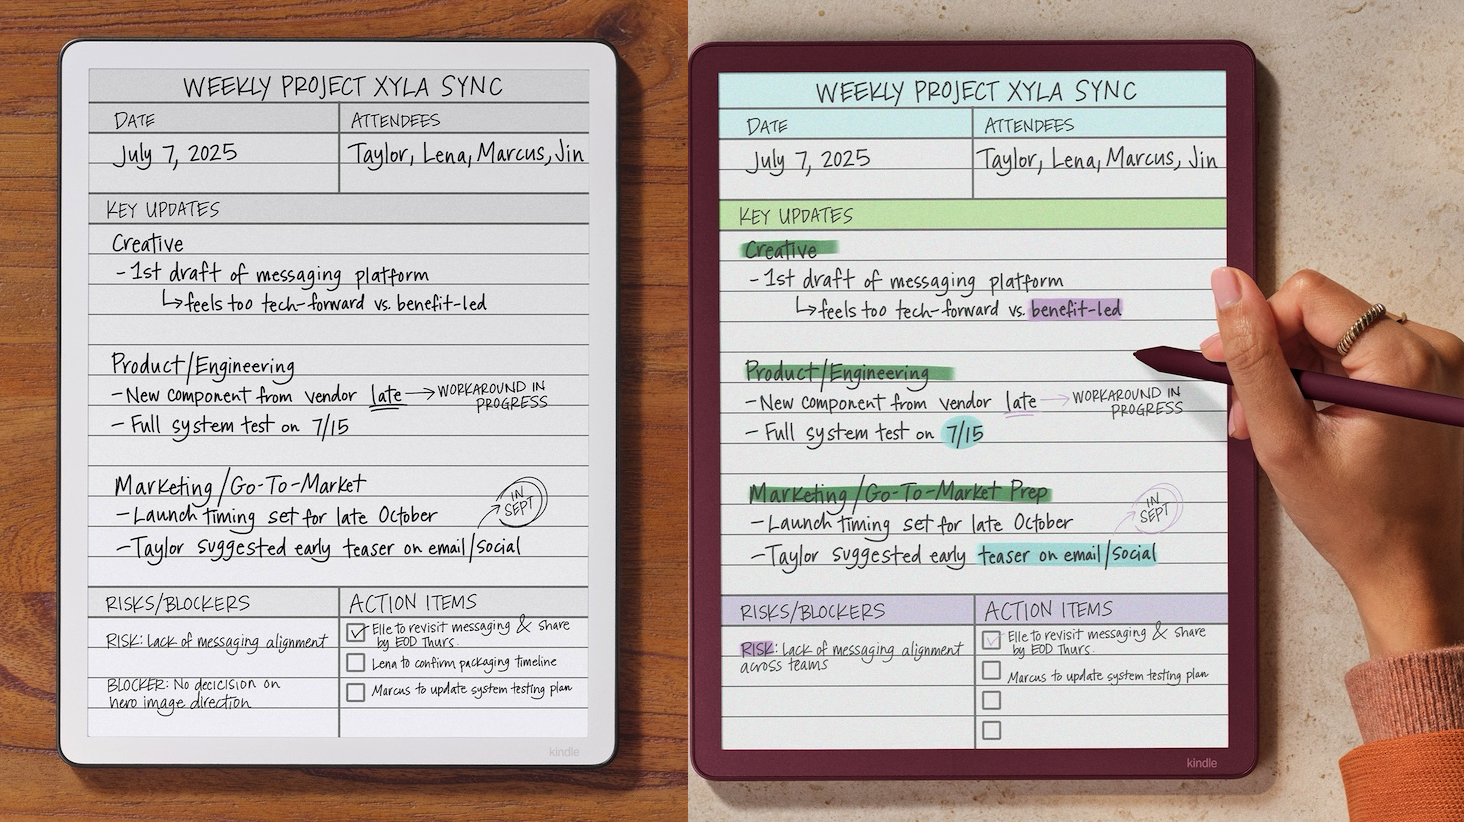 WEEKLY PROJECT XYLA SYNC
DATE
ATTENDEES
July 7, 2025
Taylor, Lena, Marcus, Jin
KEY UPDATES
Creative
- 1st draft of messaging platform
↳ feels too tech-forward vs. benefit-led
Product/Engineering
- New component from vendor late → WORKAROUND IN
PROGRESS
- Full system test on 7/15
Marketing/Go-To-Market
- Launch timing set for late October
IN
SEPT
- Taylor suggested early teaser on email/social
RISKS/BLOCKERS
RISK: Lack of messaging alignment
BLOCKER: No decicision on
hero image direction
ACTION ITEMS
Elle to revisit messaging & share
by EOD Thurs.
Lena to confirm packaging timeline
Marcus to update system testing plan
kindle
WEEKLY PROJECT XYLA SYNC
DATE
ATTENDEES
July 7, 2025
Taylor, Lena, Marcus, Jin
KEY UPDATES
Creative
- 1st draft of messaging platform
↳ feels too tech-forward vs. benefit-led
Product/Engineering
- New component from vendor late → WORKAROUND IN
PROGRESS
- Full system test on 7/15
Marketing/Go-To-Market Prep
- Launch timing set for late October
IN
SEPT
- Taylor suggested early teaser on email/social
RISKS/BLOCKERS
RISK: Lack of messaging alignment
across teams
ACTION ITEMS
Elle to revisit messaging & share
by EOD Thurs.
Marcus to update system testing plan
kindle